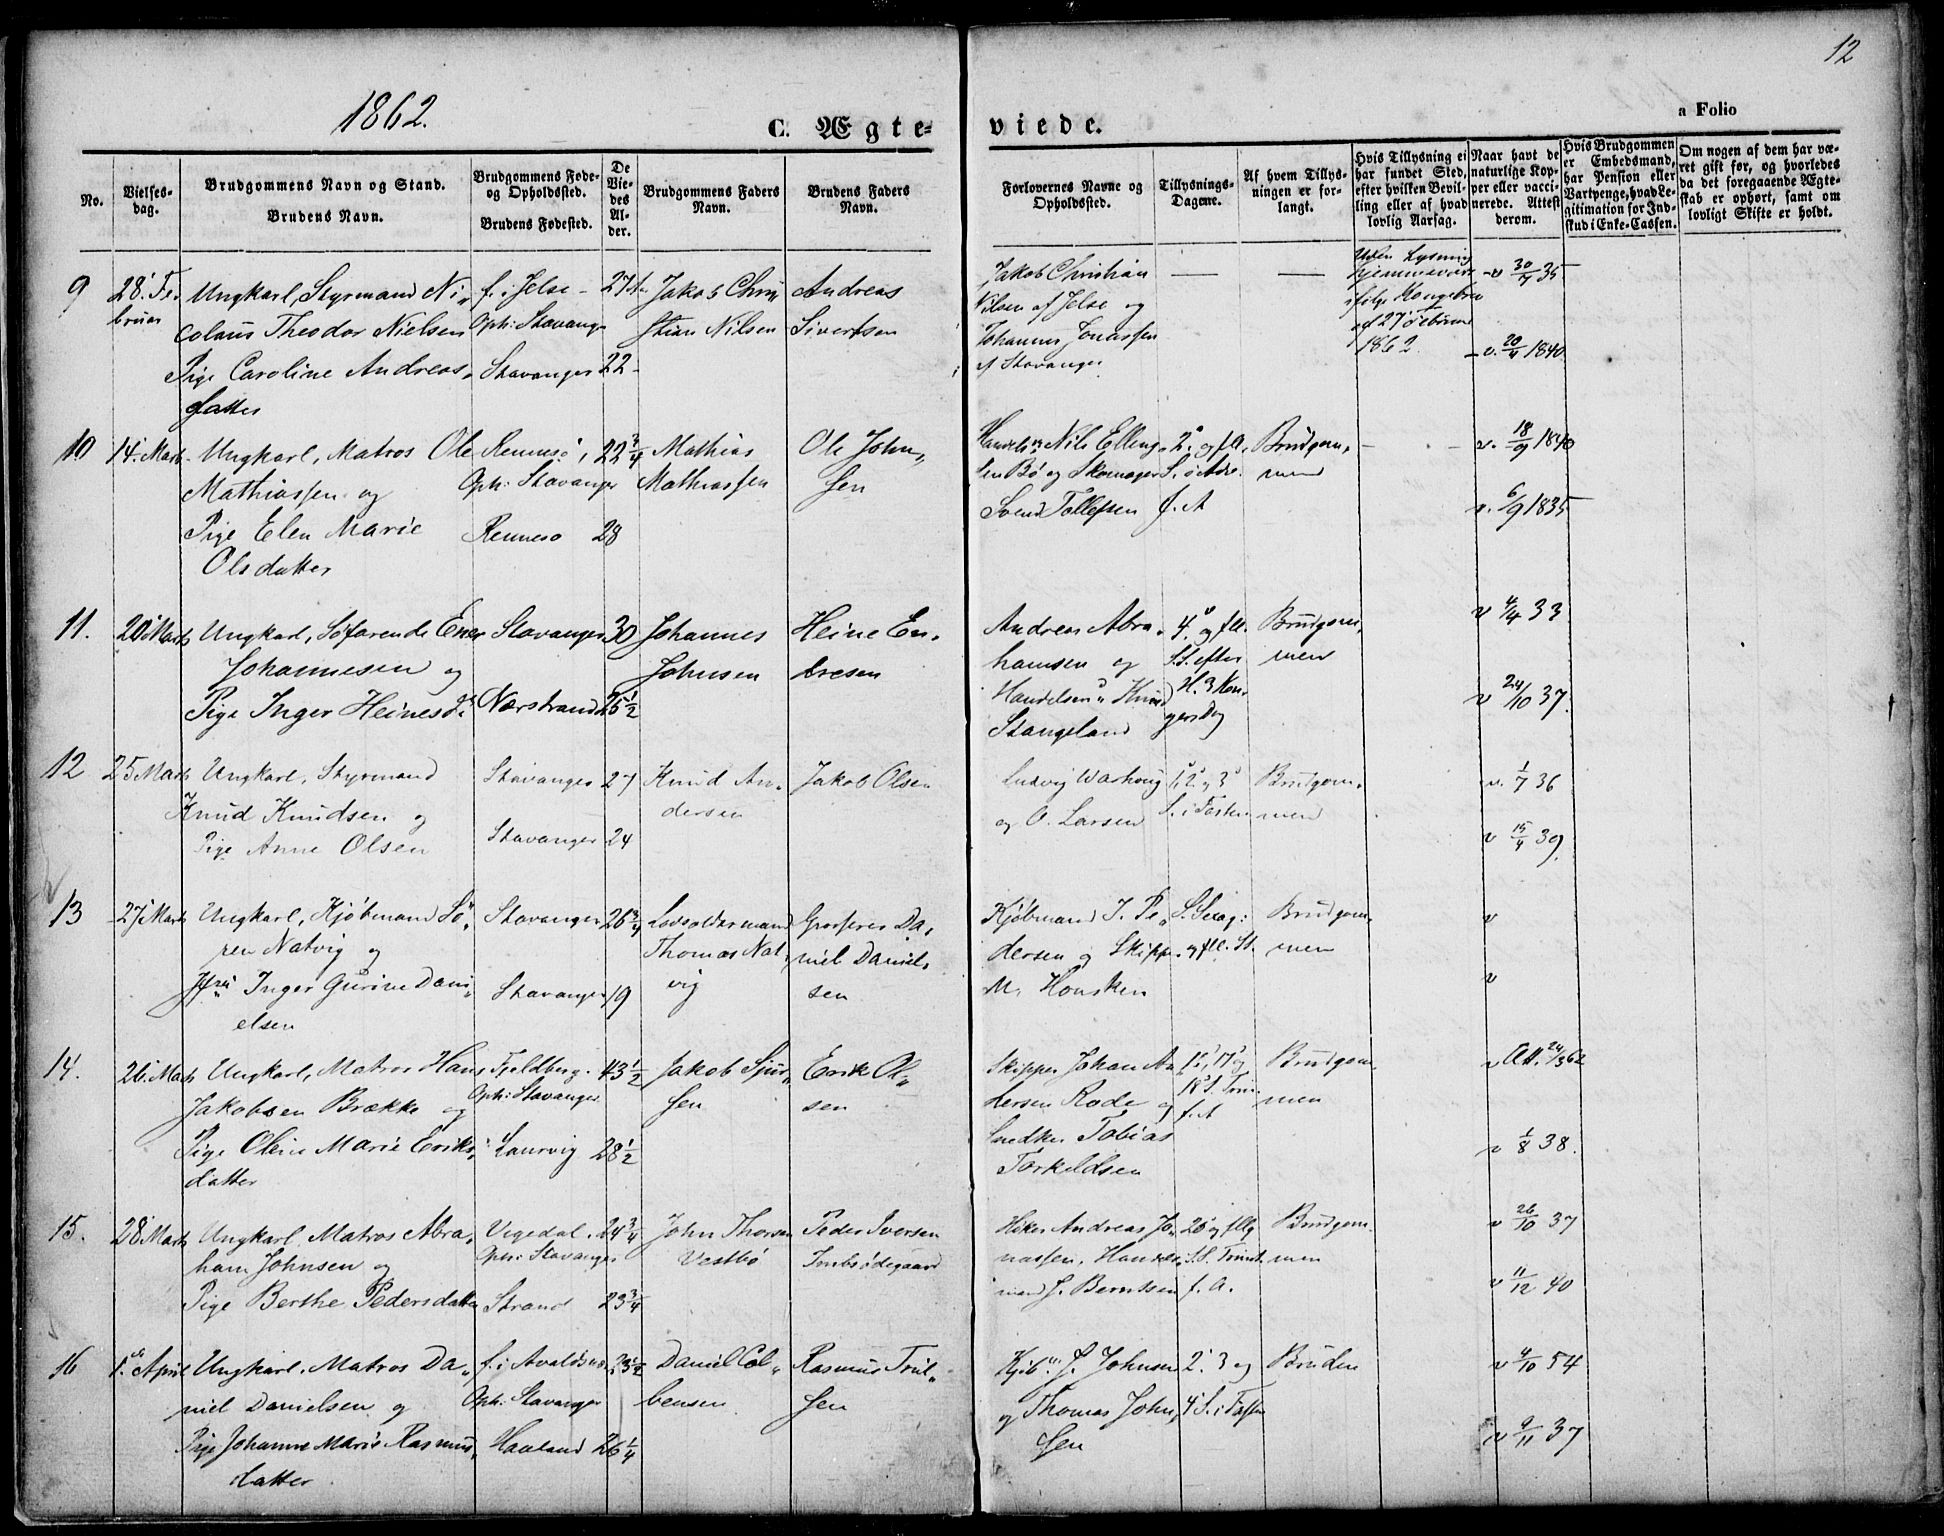 12
1862.
a Folio
C. Ægte-
viede.
No.
Vielses-
dag.
Brudgommens Navn og Stand.
Brudens Navn.
Brudgommens Føde-
og Opholdssted.
Brudens Fødested.
De
Vie-
des
Al-
der.
Brudgommens Faders
Navn.
Brudens Faders
Navn.
Forlovernes Navne og
Opholdssted.
Tillysnings-
Dagene.
Af hvem Tillys-
ningen er for-
langt.
Hvis Tillysning ei
har fundet Sted,
efter hvilken Bevil-
ling eller af hvad
lovlig Aarsag.
Naar havt de
naturlige Kop-
per eller vacci-
nerede. Attest
derom.
Hvis Brudgommen
er Embedsmand,
har Pension eller
Vartpenge, hvad Le-
gitimation for Ind-
skud i Enke-Cassen.
Om nogen af dem har væ-
ret gift før, og hvorledes
da det foregaaende Ægte-
skab er ophørt, samt om
lovligt Skifte er holdt.
9
28. Fe-
bruar
Ungkarl, Styrmand Ni-
colaus Theodor Nielsen
Pige Caroline Andreas-
datter
f. i Jelse
Oph: Stavanger
Stavanger
22
Jakob Chri-
stian Nilsen
Andreas
Sivertsen
Jakob Christian
Nilsen af Jelse og
Johannes Jonassen
af Stavanger
Uden Lysning
1862.
v 35
v. 20/4 1840
10
14. Marts
Ungkarl, Matros Ole
Mathiassen og
Pige Elen Marie
Olsdatter
Rennesø,
Oph: Stavanger
Rennesø
22 3/4
28
Mathias
Mathiassen
Ole John-
sen
Nils Elling-
sen Bø og Skomager
Svend Tollefsen
f. A
Brudgom-
men
v. 18/9 1840
v. 6/9 1835
11.
20 Marts
Ungkarl, Søfarende
Johannesen og
Pige Inger Heinesd.
Stavanger
Nærstrand
30
25 1/2
Johannes
Johnsen
Heine En-
dresen
Andreas Abra-
hamsen og
Handelsm. Knud
Stangeland
4. og fll.
S. S. efter
H. 3 Kon-
gers Dag
Brudgom-
men
v 4/4 33
v 24/10 37.
12
25 Marts
Ungkarl, Styrmand
Knud Knudsen og
Pige Anne Olsen
Stavanger
Stavanger
27
24
Knud An-
dersen
Jakob Olsen
Ludvig
og O. Larsen
1, 2 og 3
S. i Fasten
Brudgom-
men
v. 1/7 36
v 15/4 39.
13
27 Marts
Ungkarl, Kjøbmand Sø-
ren Natvig og
Jfru Inger Gurine Dani-
elsen
Stavanger
Stavanger
26 3/4
19
Lodsoldermand
Thomas Nat-
vig
Grosserer Da-
niel Daniel-
sen
Kjøbmand J. Pe-
dersen og Skipper
M. Housken
S. Sexag:
og fll. S.
Brudgom-
men
v
v
14.
26. Marts
Ungkarl, Matros Hans
Jakobsen Brække og
Pige Oline Marie Eriks-
datter
Fjeldberg.
Oph: Stavanger
Laurvig
43 1/2
28 1/2
Jakob Sjur-
sen
Erik Ol-
sen
Skipper Johan An-
dersen Rode og
Snedker Tobias
Torkeldsen
16, 17 og
18 S. Trin.
f. A
Brudgom-
men
v Att. 24/3 62
v 1/8 38.
15.
28 Marts
Ungkarl, Matros Abra-
ham Johnsen og
Pige Berthe Pedersdatter
Vigedal.
Oph: Stavanger
Strand
24 3/4
23 3/4
John Thorsen
Vestbø
Peder Iversen
Høker Andreas Jo-
nassen, Handels-
mand J. Berntsen
20 og fllg
S. S. Trinit.
f. A.
Brudgom-
men
v 26/10 37
v 11/12 40
16
1. April
Ungkarl. Matros Da-
niel Danielsen og
Pige Johanne Marie Rasmus-
datter
f. i Avaldsnæs
Oph: Stavanger
Hauland
23 1/2
26 1/4
Daniel Col-
bensen
Rasmus Trul-
sen
Kjøb. J. Johnsen
og Thomas John-
sen
2. 3 og
4 S. i Fasten
Bruden
v 4/10 54
v 9/11 37